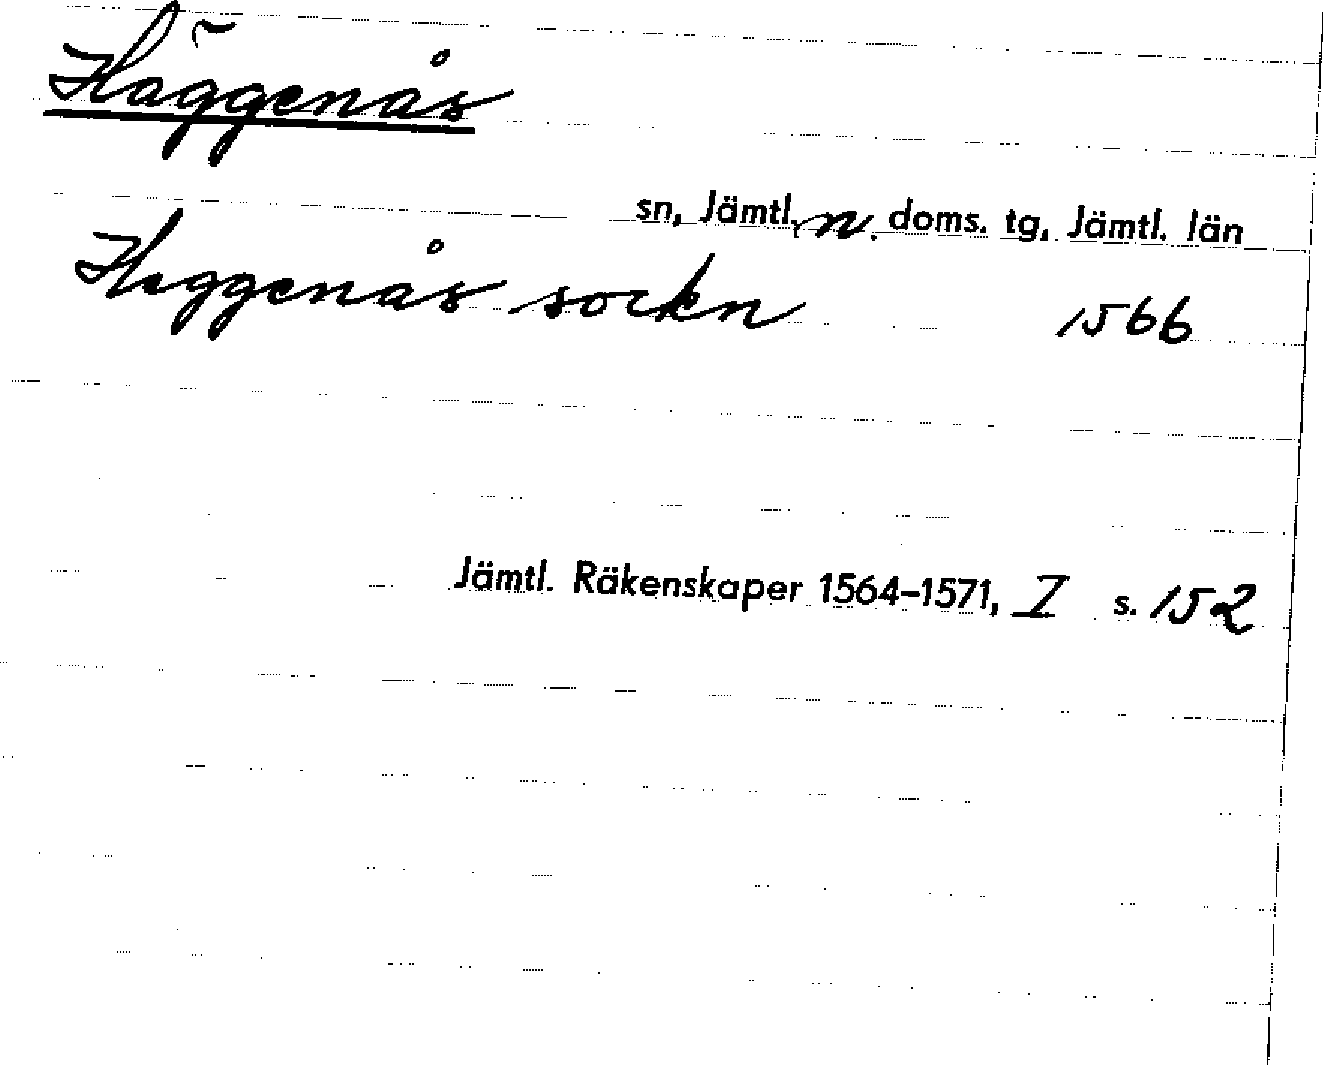 Häggenås
sn, Jämtl. n. doms. tg, Jämtl. län
Heggenås sockn 1566
Jämtl. Räkenskaper 1564-1571, I s. 152